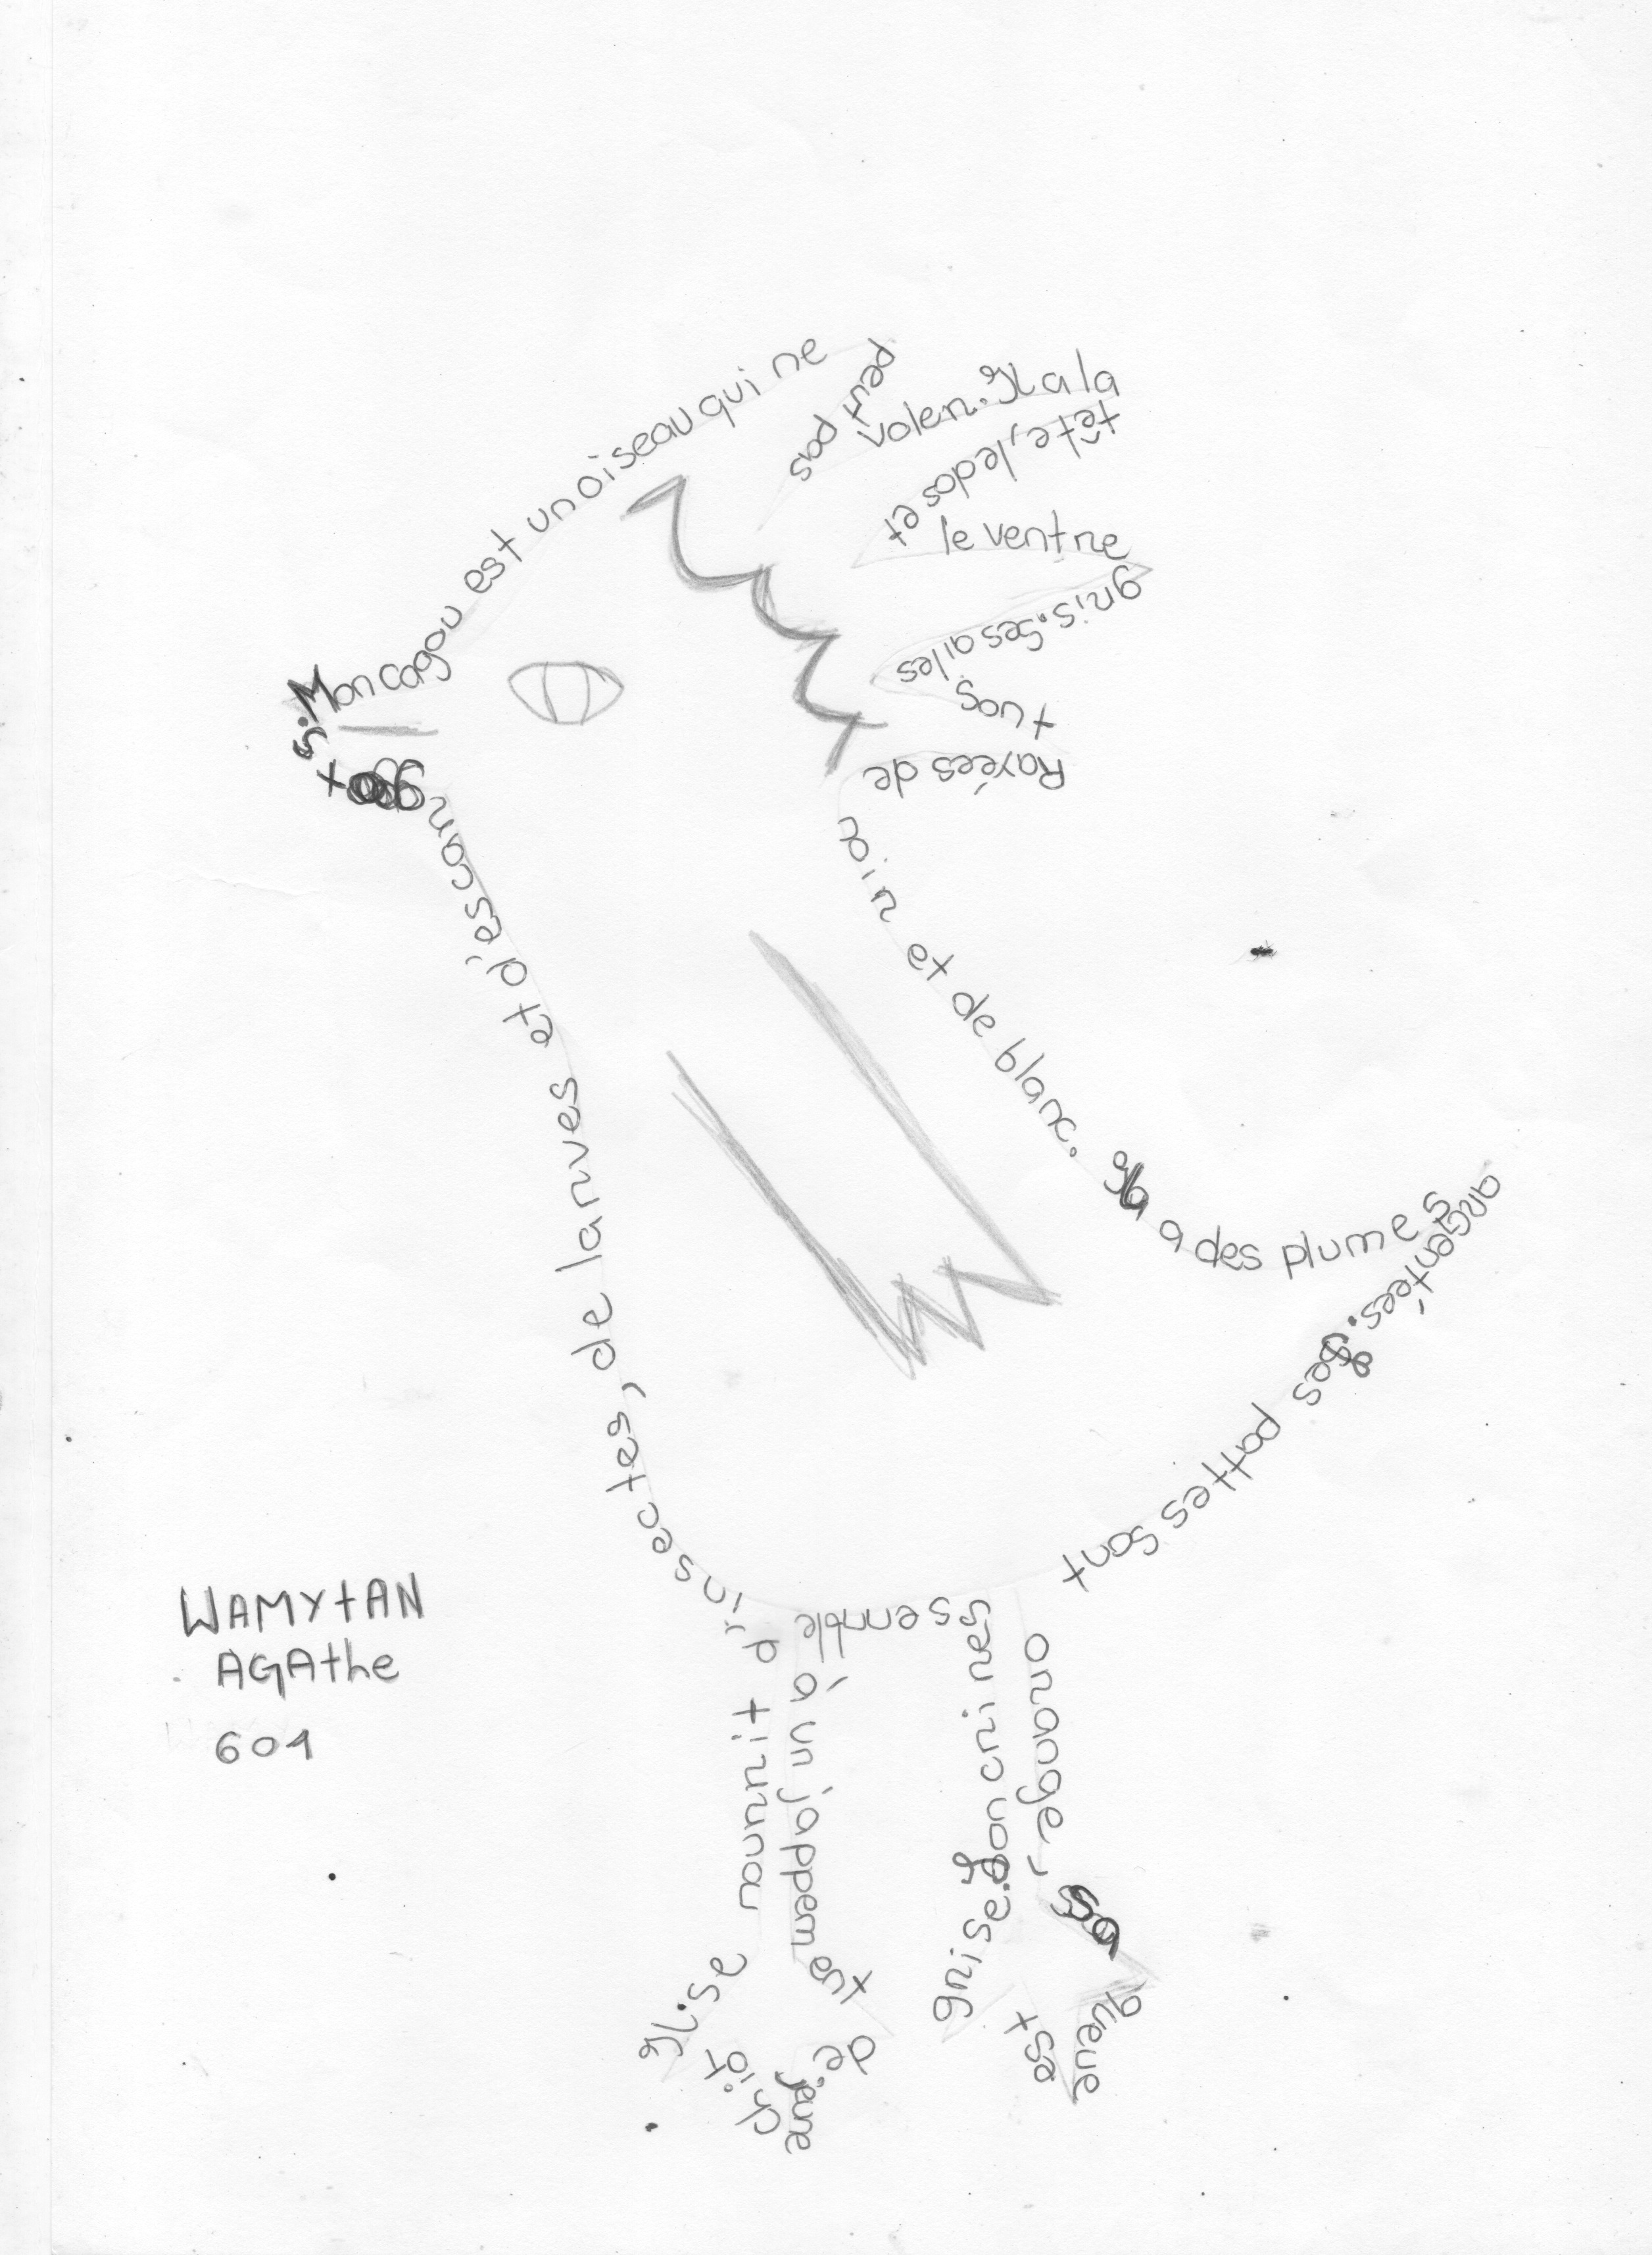 Mon cagou est un oiseau qui ne
peut pas
voler. Il a la
tête, le dos et
le ventre
gris. Ses ailes
sont
Rayées de
noir et de blanc. Il a des plumes
argentées. Ses pattes sont
orange,
sa
queue
est
grise. Son cri res
semble
à un jappement
de
jeune
chiot
. Il se nourrit d'insectes, de larves et d'escar
gots.
WAMYtAN
AGAthe
601